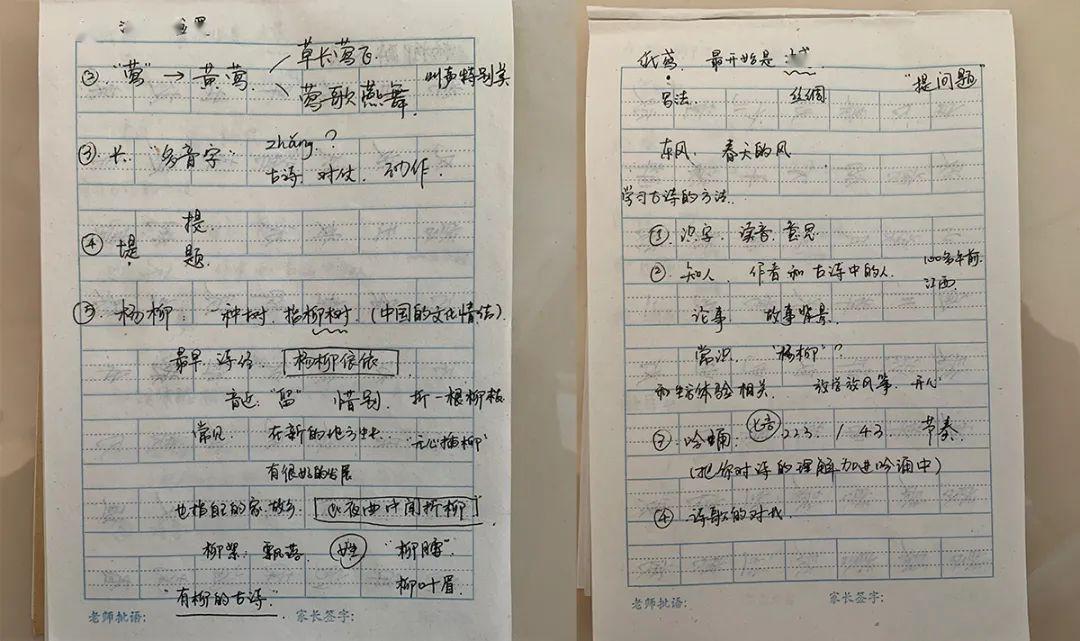 草长莺飞
② "莺" → 黄莺 叫声特别美
莺歌燕舞
zhǎng ?
③ 长 "多音字"
古诗 对仗 动作
提
④ 堤
题
⑤ 杨柳: 一种树 指柳树 (中国的文化情结)
最早 诗经 杨柳依依
音近 "留" 惜别 折一根柳枝
常见 在新的地方 "无心插柳"
有很好的发展
也指自己的家 故乡 此夜曲中闻折柳
柳絮: 飘荡 姓 "柳腰"
柳叶眉
"有柳的古诗"
老师批语: 家长签字:
纸鸢 最开始是
写法 丝绸 "提问题"
东风 春天的风
学习古诗的方法
① 识字 读音 意思
② 知人 作者和古诗中的人 100多年前
江西
论事 故事背景
常识 "杨柳"?
和生活体验相关 放学放风筝 开心
③ 吟诵: 七言 223 / 43 节奏
(把你对诗的理解加进吟诵中)
④ 诗歌的对我
老师批语: 家长签字: